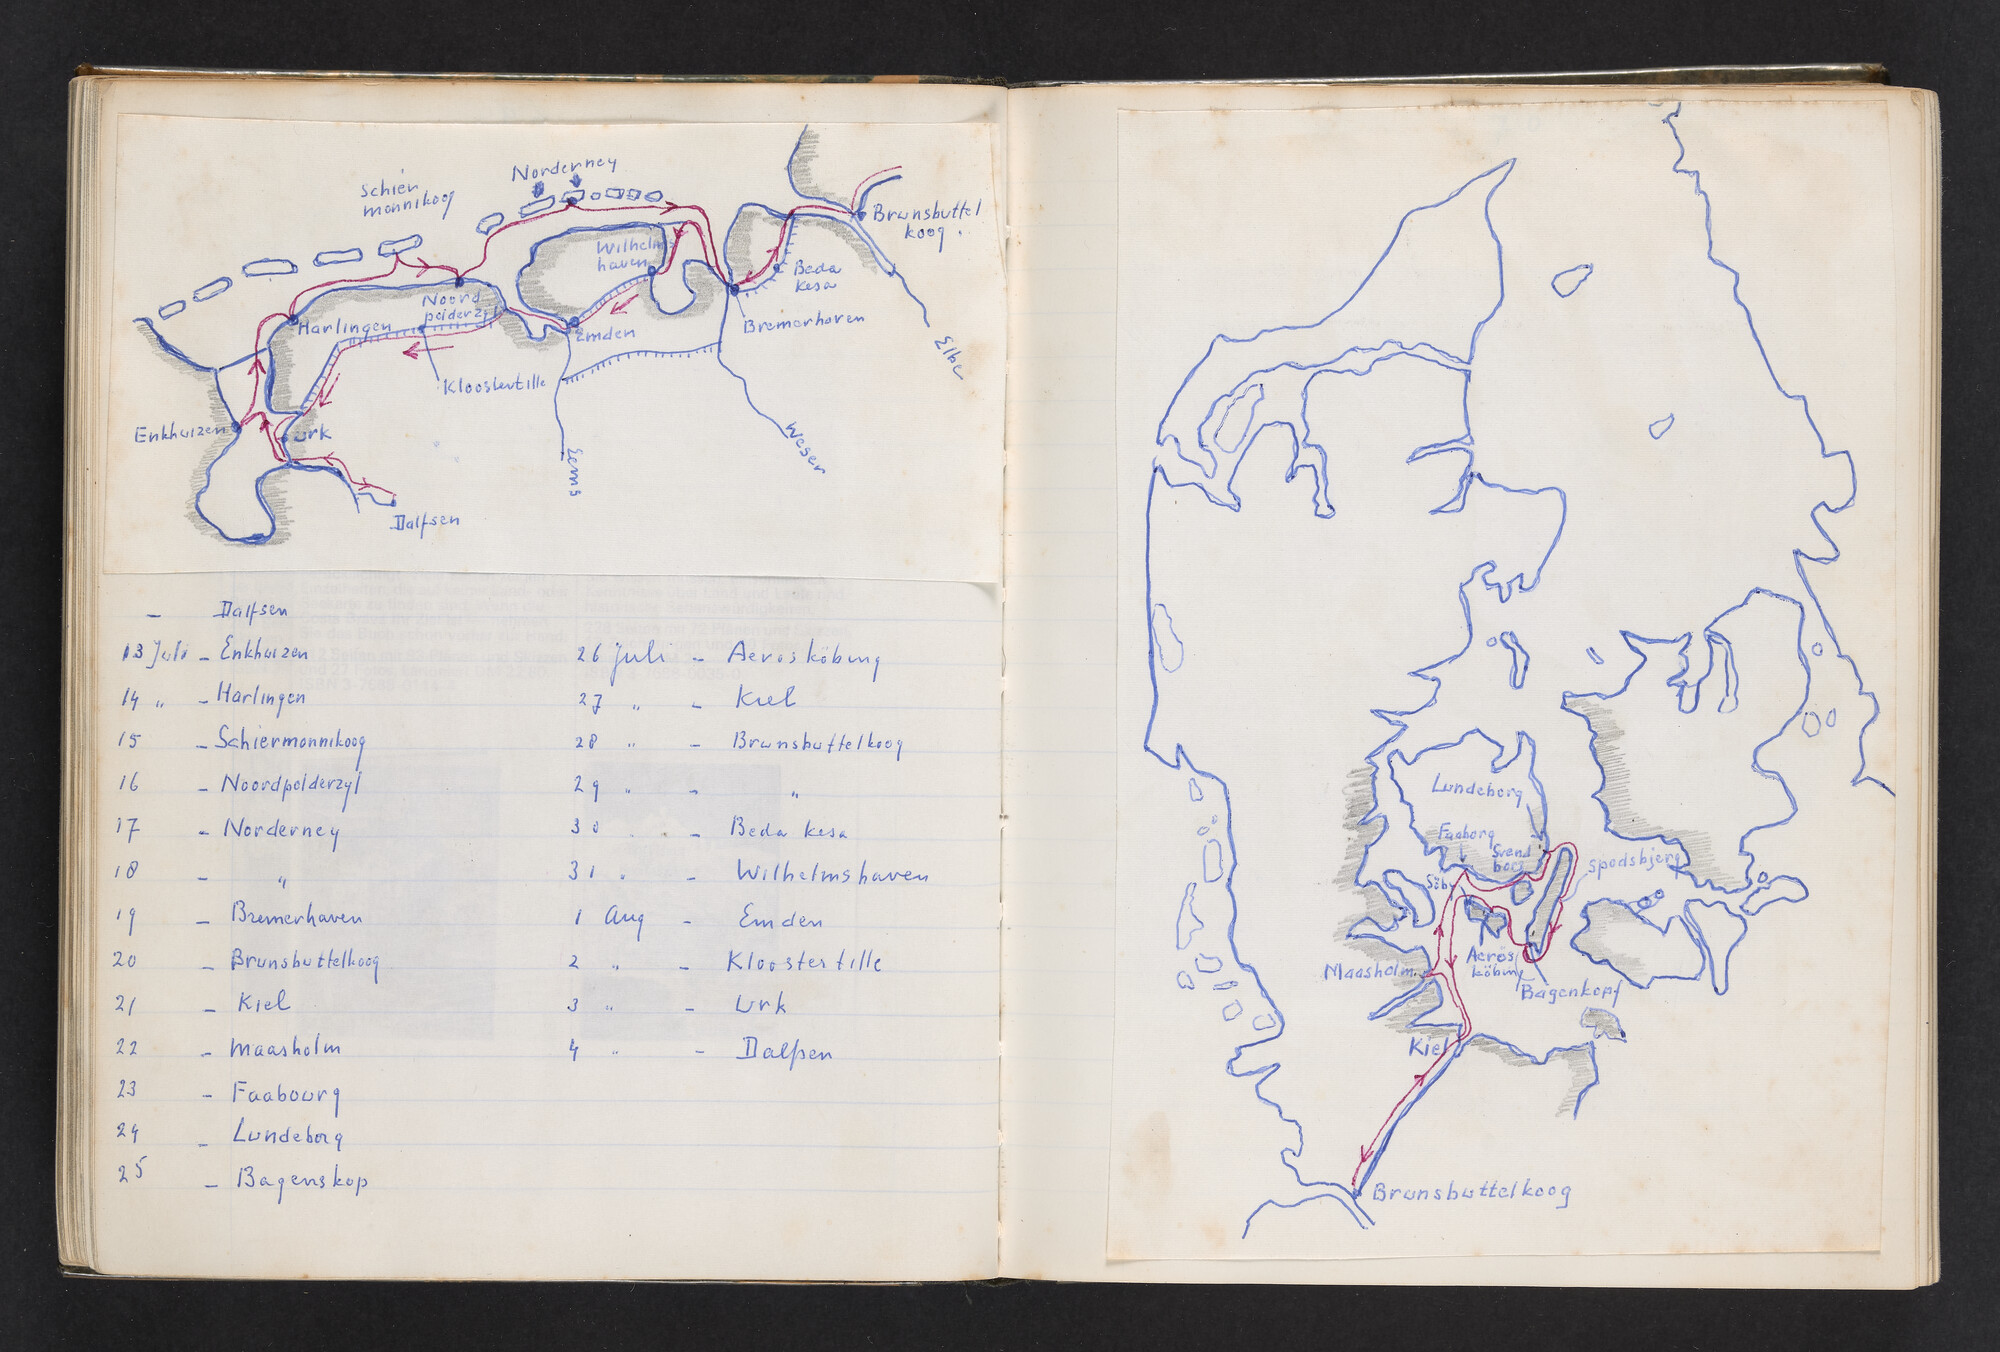 Norderney
Schier
monnikoog
Brunsbuttel
koog.
Wilhelm
haven
Beda
kesa
Noord
polderzyl
Harlingen
Emden
Bremerhaven
Elbe
Kloostertille
Enkhuizen
Urk
Weser
Eems
Dalfsen
- Dalfsen
13 Juli - Enkhuizen
14 " - Harlingen
15 - Schiermonnikoog
16 - Noordpolderzyl
17 - Norderney
18 - "
19 - Bremerhaven
20 - Brunsbuttelkoog
21 - Kiel
22 - Maasholm
23 - Faabourg
24 - Lundeborg
25 - Bagenskop
26 juli - Aerosköbing
27 " - Kiel
28 " - Brunsbuttelkoog
29 " - "
30 " - Beda kesa
31 " - Wilhelmshaven
1 Aug - Emden
2 " - Kloostertille
3 " - Urk
4 " - Dalfsen
Lundeborg
Faaborg
Svend
borg
Spodsbjerg
Söby
Maasholm
Aerös
köbing
Bagenkopf
Kiel
Brunsbuttelkoog